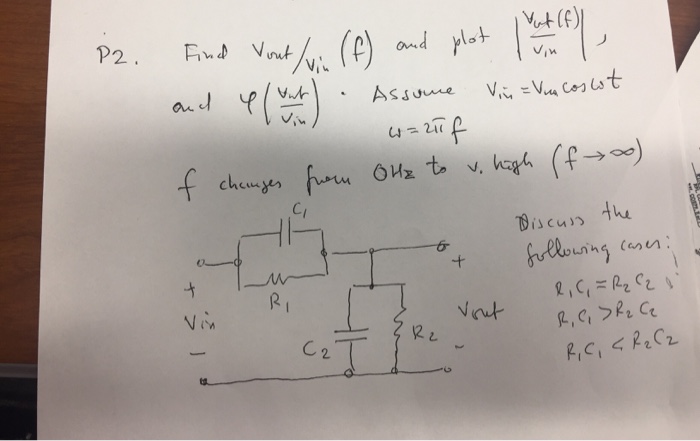 P2. Find Vout/Vin (f) and plot |Vout(f)/Vin|,
and φ(Vout/Vin). Assume Vin = Vm cos ωt
ω = 2π f
f changes from 0Hz to v. high (f → ∞)
C1
R1
+
Vin
-
C2
R2
+
Vout
-
Discuss the
following cases:
R1C1 = R2C2
R1C1 > R2C2
R1C1 < R2C2